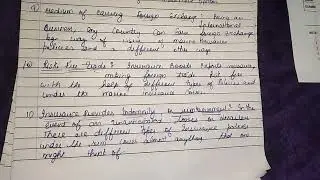 9) Medium of Earning Foreign Exchange: being an
International
Business, any Country can earn foreign exchange
by way of of marine insurance
policies and a different other way
10) Risk Free Trade? Insurance boosts exports
making foreign trade risk free
with the help of different types of policies and
under the marine insurance cover.
11) Insurance Provides Indemnity, or reimbursement? In the
event of an unanticipated losses or disaster
There are different types of Insurance policies
under the sum cover almost anything that one
might think of